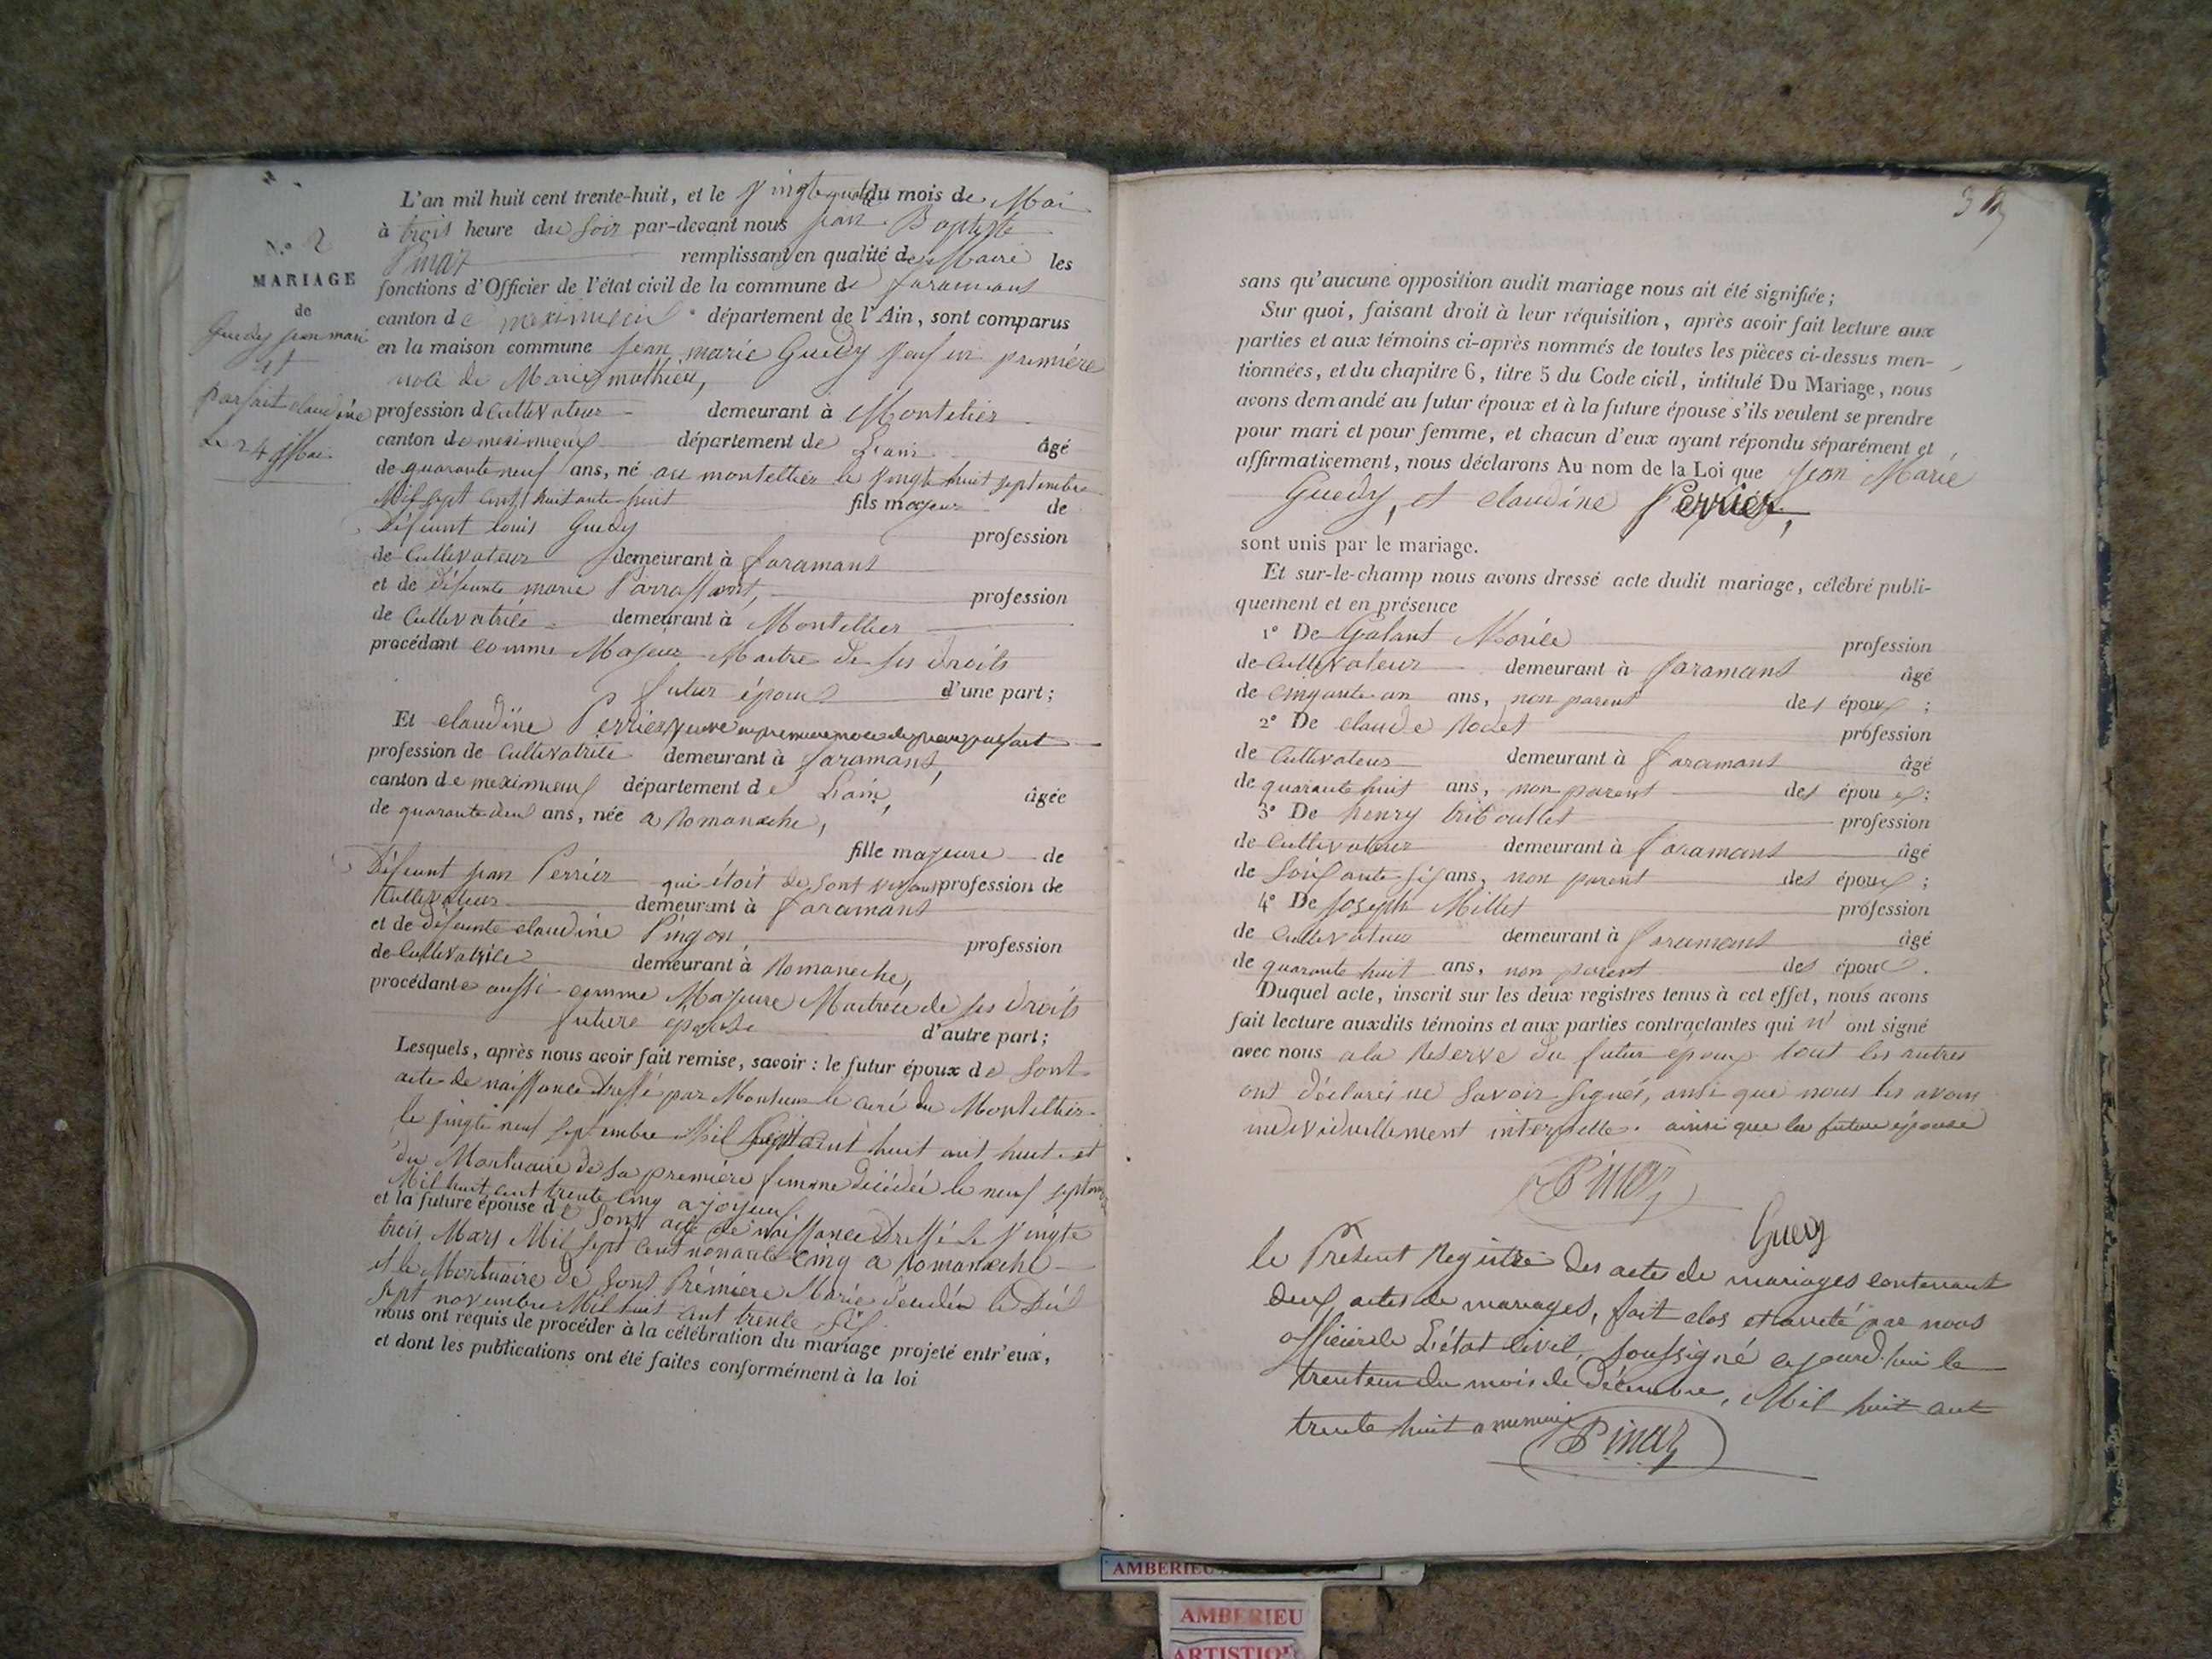 N.° 2
MARIAGE
de
Guedy jean marie
et
parfait claudine
Le 24 Mai
L'an mil huit cent trente-huit, et le Vingt quatre du mois de Mai
à trois heure du soir par-devant nous jean Baptiste
Pinaz remplissant en qualité de Maire les
fonctions d'Officier de l'état civil de la commune de faramans
canton de meximieux département de l'Ain, sont comparus
en la maison commune jean marie Guedy Veuf en première
noce de Marie mathieu,
profession de Cultivateur demeurant à Montelier
canton de meximieux département de L'ain âgé
de quarante neuf ans, né au montellier le Vingt huit septembre
Mil sept cent huitante huit fils majeur de
Défeunt louis Guedy profession
de Cultivateur demeurant à faramans
et de défeunte marie profession
de Cultivatrice demeurant à Montellier
procédant comme Majeur Maitre de ses droits
futur époux d'une part;
Et claudine Perrier Veuve en premiere noce de parfait
profession de Cultivatrice demeurant à faramans,
canton de meximieux département de L'ain, âgée
de quarante deux ans, née a Romaneche,
fille majeure de
Défeunt jean Perrier qui étoit de sont vivans profession de
Cultivateur demeurant à faramans
et de défeunte claudine Pingon, profession
de Cultivatrice demeurant à Romaneche,
procédante aussi comme Majeure Maitresse de ses droits
future épouse d'autre part;
Lesquels, après nous avoir fait remise, savoir : le futur époux de sont
acte de naissance dressé par Monsieur le curé du Montellier
le Vingt neuf septembre Mil sept cent huit ant huit et
du Mortuaire de sa première femme décédée le neuf septembre
Mil huit cent trente cinq a joyeux
et la future épouse de sont acte de naissance dressé le Vingte
trois Mars Mil sept cent nonante cinq a Romaneche
et le Mortuaire de sont Prémiere Marie décédée le Dix
sept novembre Mil huit cent trente six
nous ont requis de procéder à la célébration du mariage projeté entr'eux,
et dont les publications ont été faites conformément à la loi
sans qu'aucune opposition audit mariage nous ait été signifiée;
Sur quoi, faisant droit à leur réquisition, après avoir fait lecture aux
parties et aux témoins ci-après nommés de toutes les pièces ci-dessus men-
tionnées, et du chapitre 6, titre 5 du Code civil, intitulé Du Mariage, nous
avons demandé au futur époux et à la future épouse s'ils veulent se prendre
pour mari et pour femme, et chacun d'eux ayant répondu séparément et
affirmativement, nous déclarons Au nom de la Loi que Jean Marie
Guedy, et claudine Perrier,
sont unis par le mariage.
Et sur-le-champ nous avons dressé acte dudit mariage, célébré publi-
quement et en présence
1° De Galant profession
de Cultivateur demeurant à faramans âgé
de cinquante an ans, non parent des époux ;
2° De claude Rodet profession
de Cultivateur demeurant à faramans âgé
de quarante huit ans, non parent des époux ;
3° De henry triboullet profession
de Cultivateur demeurant à faramans âgé
de soixante six ans, non parent des époux ;
4° De Joseph Millet profession
de Cultivateur demeurant à faramans âgé
de quarante huit ans, non parent des époux.
Duquel acte, inscrit sur les deux registres tenus à cet effet, nous avons
fait lecture auxdits témoins et aux parties contractantes qui n' ont signé
avec nous a la Reserve du futur époux tout les autres
ont déclarés ne savoir signés, ansi que nous les avons
individuellement interpellé. ainsi que la future épouse
Pinaz
Guedy
le Présent Registre des actes de mariages contenant
deux actes de mariages, fait clos et arreté par nous
officier de L'état Civil, soussigné aujourd'hui le
trente un du mois de Décembre, Mil huit cent
trente huit a
Pinaz
AMBERIEU
AMBERIEU
ARTISTIQ